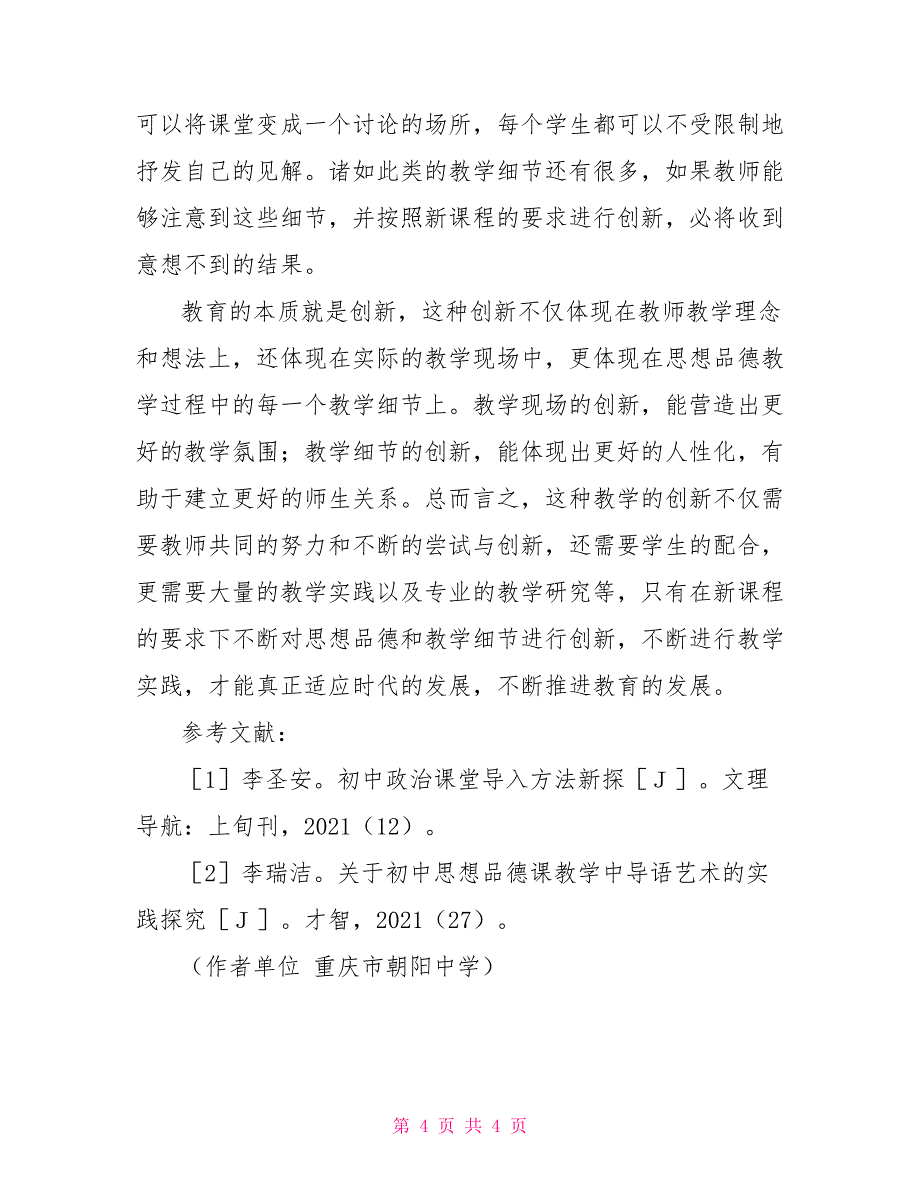 可以将课堂变成一个讨论的场所，每个学生都可以不受限制地
抒发自己的见解。诸如此类的教学细节还有很多，如果教师能
够注意到这些细节，并按照新课程的要求进行创新，必将收到
意想不到的结果。
教育的本质就是创新，这种创新不仅体现在教师教学理念
和想法上，还体现在实际的教学现场中，更体现在思想品德教
学过程中的每一个教学细节上。教学现场的创新，能营造出更
好的教学氛围；教学细节的创新，能体现出更好的人性化，有
助于建立更好的师生关系。总而言之，这种教学的创新不仅需
要教师共同的努力和不断的尝试与创新，还需要学生的配合，
更需要大量的教学实践以及专业的教学研究等，只有在新课程
的要求下不断对思想品德和教学细节进行创新，不断进行教学
实践，才能真正适应时代的发展，不断推进教育的发展。
参考文献：
［1］李圣安。初中政治课堂导入方法新探［Ｊ］。文理
导航：上旬刊，2021（12）。
［2］李瑞洁。关于初中思想品德课教学中导语艺术的实
践探究［Ｊ］。才智，2021（27）。
（作者单位 重庆市朝阳中学）
第 4 页 共 4 页